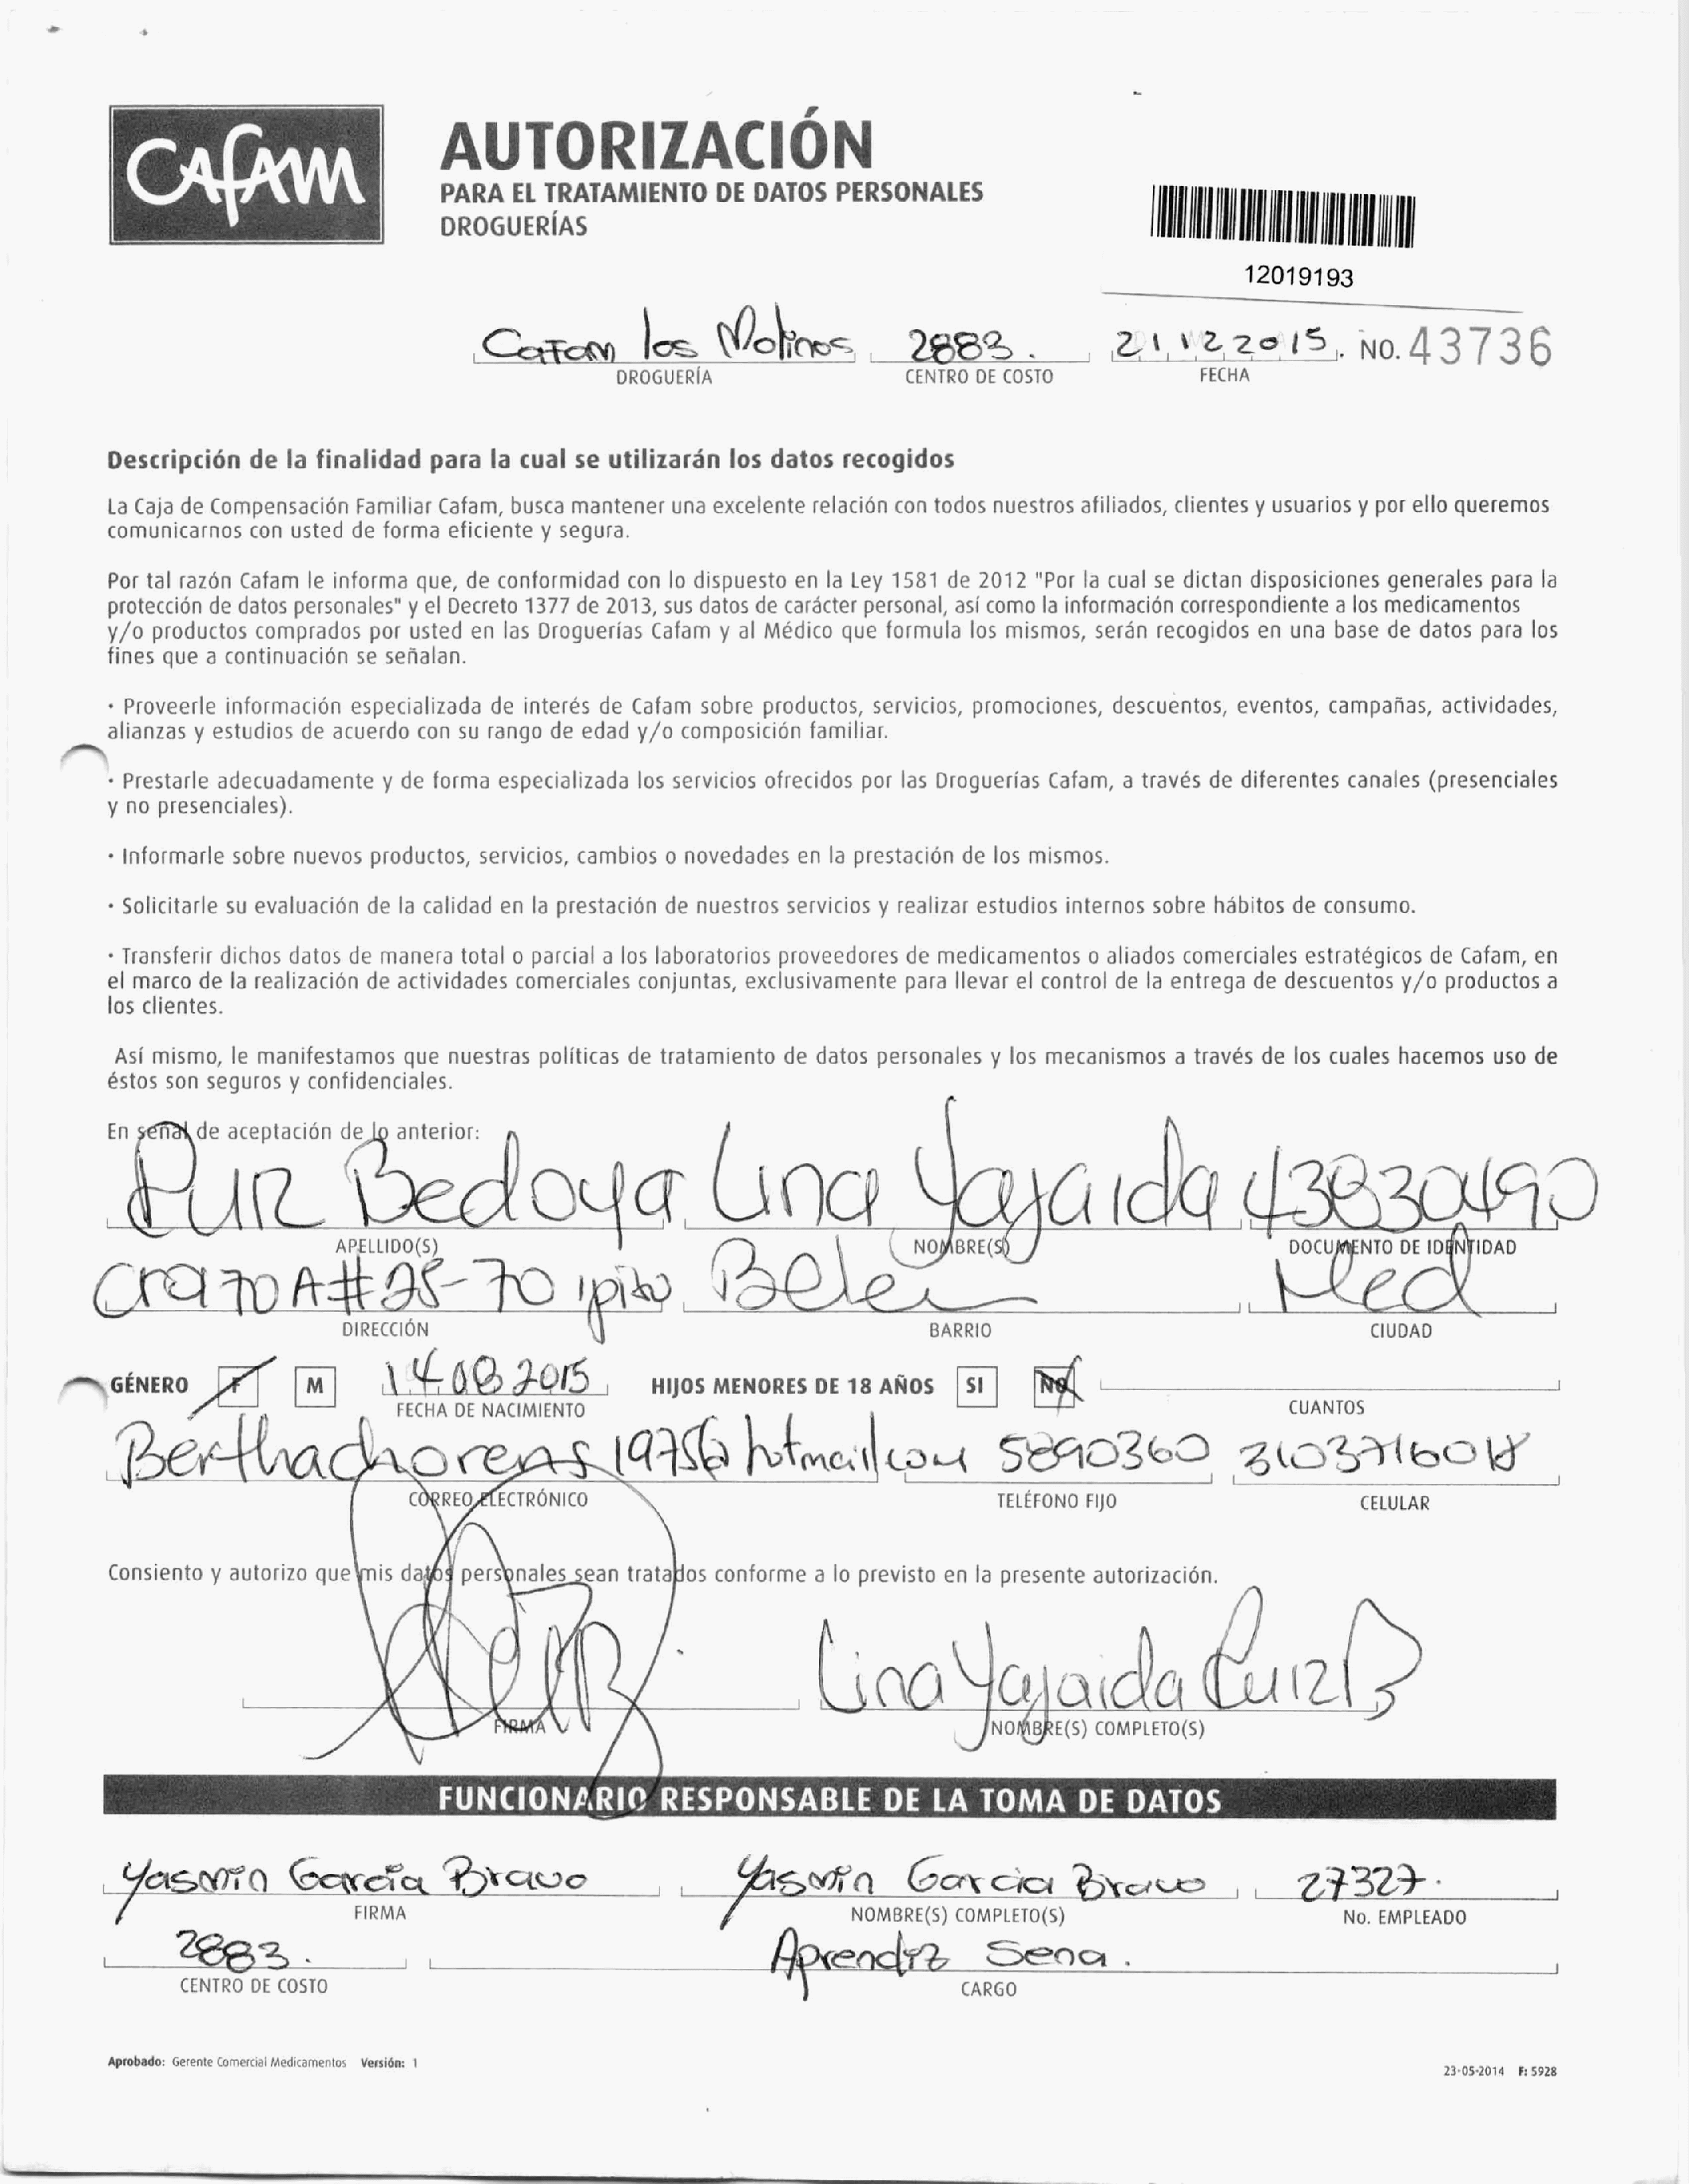 CAFAM
AUTORIZACIÓN
PARA EL TRATAMIENTO DE DATOS PERSONALES
DROGUERÍAS
12019193
Cafam los Molinos 2883. 21 12 2015. NO. 43736
DROGUERÍA CENTRO DE COSTO FECHA
Descripción de la finalidad para la cual se utilizarán los datos recogidos
La Caja de Compensación Familiar Cafam, busca mantener una excelente relación con todos nuestros afiliados, clientes y usuarios y por ello queremos
comunicarnos con usted de forma eficiente y segura.
Por tal razón Cafam le informa que, de conformidad con lo dispuesto en la Ley 1581 de 2012 "Por la cual se dictan disposiciones generales para la
protección de datos personales" y el Decreto 1377 de 2013, sus datos de carácter personal, así como la información correspondiente a los medicamentos
y/o productos comprados por usted en las Droguerías Cafam y al Médico que formula los mismos, serán recogidos en una base de datos para los
fines que a continuación se señalan.
· Proveerle información especializada de interés de Cafam sobre productos, servicios, promociones, descuentos, eventos, campañas, actividades,
alianzas y estudios de acuerdo con su rango de edad y/o composición familiar.
· Prestarle adecuadamente y de forma especializada los servicios ofrecidos por las Droguerías Cafam, a través de diferentes canales (presenciales
y no presenciales).
· Informarle sobre nuevos productos, servicios, cambios o novedades en la prestación de los mismos.
· Solicitarle su evaluación de la calidad en la prestación de nuestros servicios y realizar estudios internos sobre hábitos de consumo.
· Transferir dichos datos de manera total o parcial a los laboratorios proveedores de medicamentos o aliados comerciales estratégicos de Cafam, en
el marco de la realización de actividades comerciales conjuntas, exclusivamente para llevar el control de la entrega de descuentos y/o productos a
los clientes.
Así mismo, le manifestamos que nuestras políticas de tratamiento de datos personales y los mecanismos a través de los cuales hacemos uso de
éstos son seguros y confidenciales.
En señal de aceptación de lo anterior:
Ruiz Bedoya Lina Yajaida 43830490
APELLIDO(S) NOMBRE(S) DOCUMENTO DE IDENTIDAD
Cra 70 A # 28-70 1piso Belen Med
DIRECCIÓN BARRIO CIUDAD
GÉNERO F M 14 08 2015 HIJOS MENORES DE 18 AÑOS SI NO
FECHA DE NACIMIENTO CUANTOS
1975@hotmail.com 5890360
CORREO ELECTRÓNICO TELÉFONO FIJO CELULAR
Consiento y autorizo que mis datos personales sean tratados conforme a lo previsto en la presente autorización.
Lina Yajaida Ruiz B
FIRMA NOMBRE(S) COMPLETO(S)
FUNCIONARIO RESPONSABLE DE LA TOMA DE DATOS
Yasmin Garcia Bravo Yasmin Garcia Bravo 27327.
FIRMA NOMBRE(S) COMPLETO(S) No. EMPLEADO
2883. Aprendiz Sena.
CENTRO DE COSTO CARGO
Aprobado: Gerente Comercial Medicamentos Versión: 1
23-05-2014 F: 5928